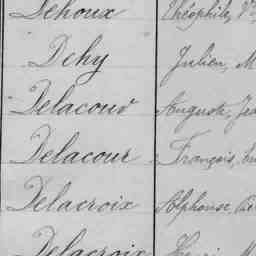 Dehoux Théophile, V
Dehy Julien, M
Delacour Auguste, Jea
Delacour François,
Delacroix Alphonse
Delacroix Henri